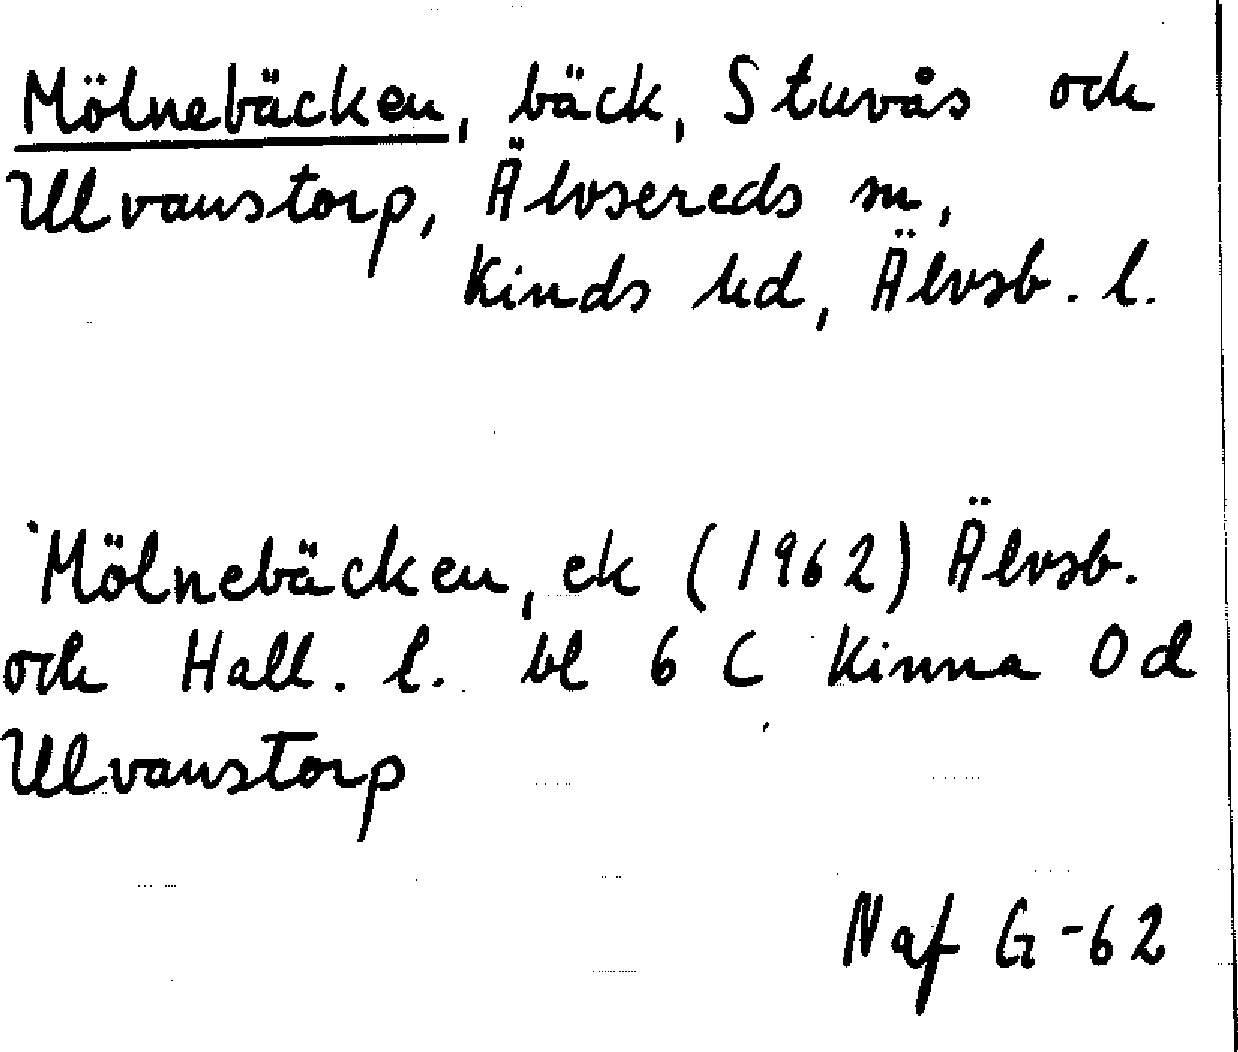 Mölnebäcken, bäck, Stuvås och
Ulvanstorp, Älvsereds sn,
Kinds hd, Älvsb. l.
Mölnebäcken, ek (1962) Älvsb.
och Hall. l. bl 6 C Kinna 0d
Ulvanstorp
Naf G-62